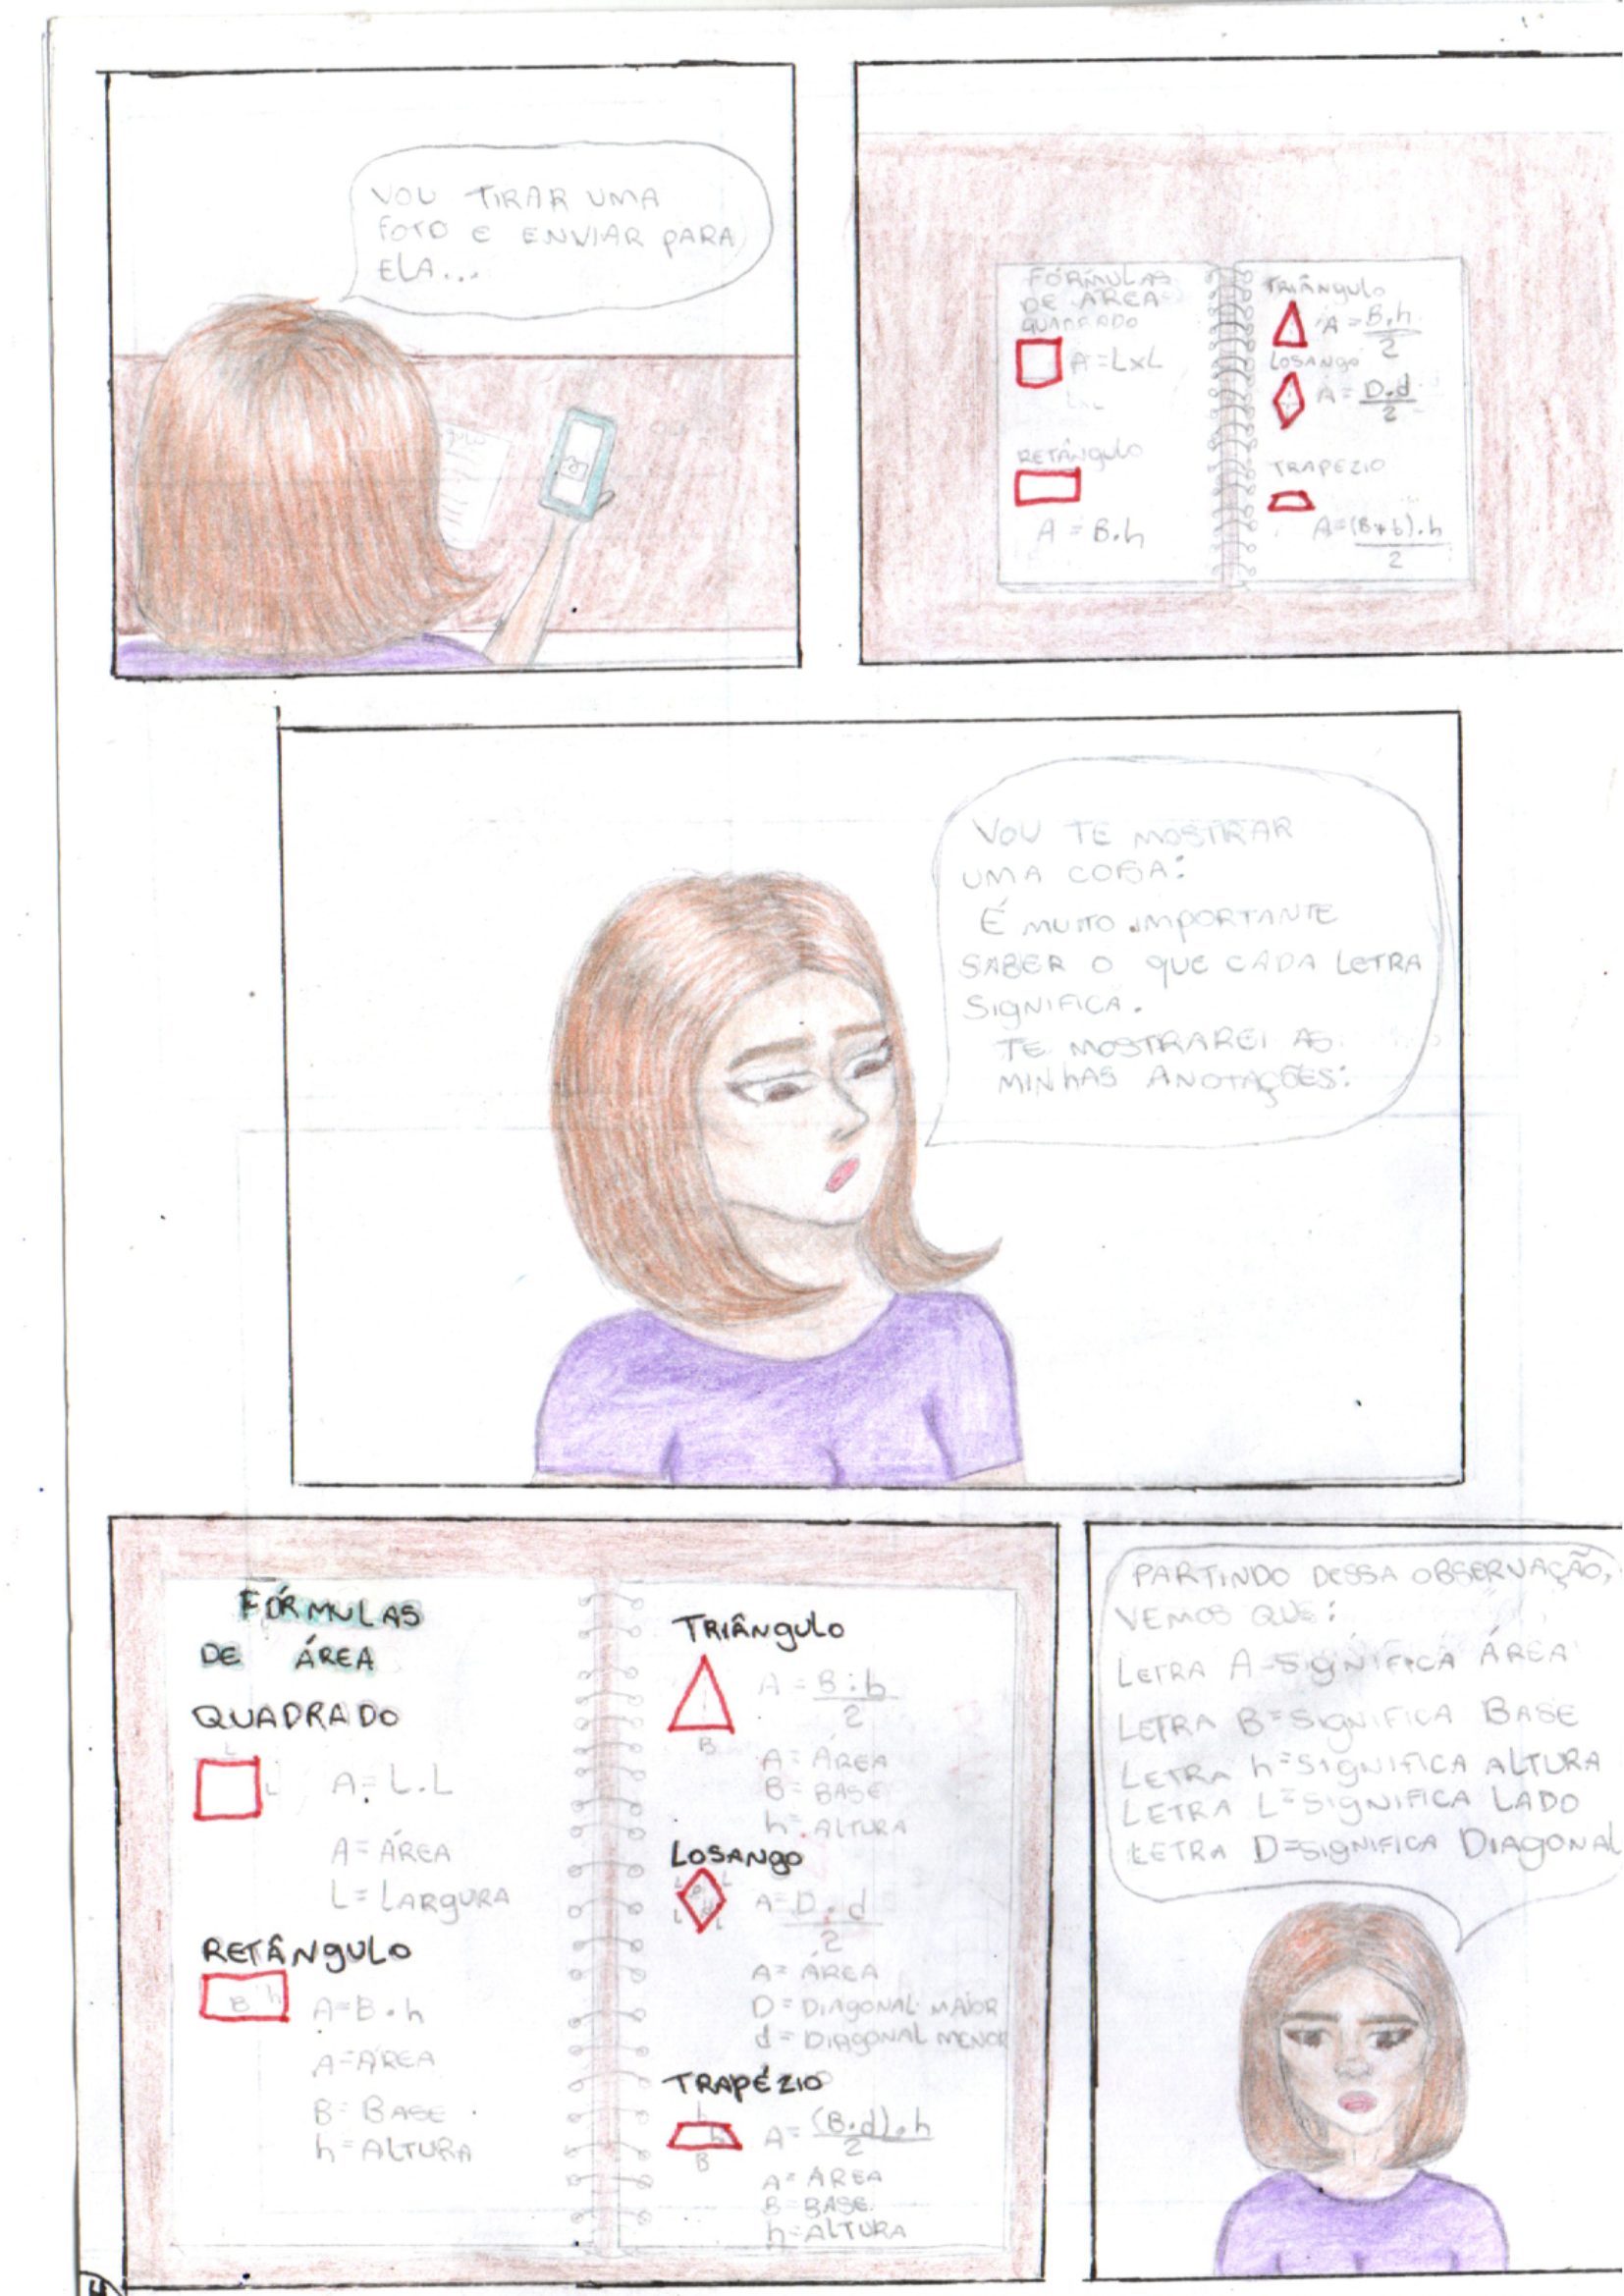 VOU TIRAR UMA
FOTO E ENVIAR PARA
ELA...
FÓRMULAS
DE ÁREA
QUADRADO
A = LxL
LxL
RETÂNGULO
A = B.h
TRIÂNGULO
A = B.h
2
LOSANGO
A = D.d
2
TRAPEZIO
A=(B+b).h
2
VOU TE MOSTRAR
UMA COISA:
É MUITO IMPORTANTE
SABER O QUE CADA LETRA
SIGNIFICA.
TE MOSTRAREI AS
MINHAS ANOTAÇÕES:
FÓRMULAS
DE ÁREA
QUADRADO
L
L
A = L.L
A = ÁREA
L = LARGURA
RETÂNGULO
B h
A=B.h
A=ÁREA
B= BASE
h=ALTURA
TRIÂNGULO
A = B.h
2
B
A= ÁREA
B= BASE
h= ALTURA
LOSANGO
L L
D
d
L L
A=D.d
2
A= ÁREA
D= DIAGONAL MAIOR
d= DIAGONAL MENOR
TRAPÉZIO
h
B
A= (B.d).h
2
A= ÁREA
B= BASE
h=ALTURA
PARTINDO DESSA OBSERVAÇÃO,
VEMOS QUE:
LETRA A-SIGNIFICA ÁREA
LETRA B=SIGNIFICA BASE
LETRA h=SIGNIFICA ALTURA
LETRA L=SIGNIFICA LADO
LETRA D=SIGNIFICA DIAGONAL